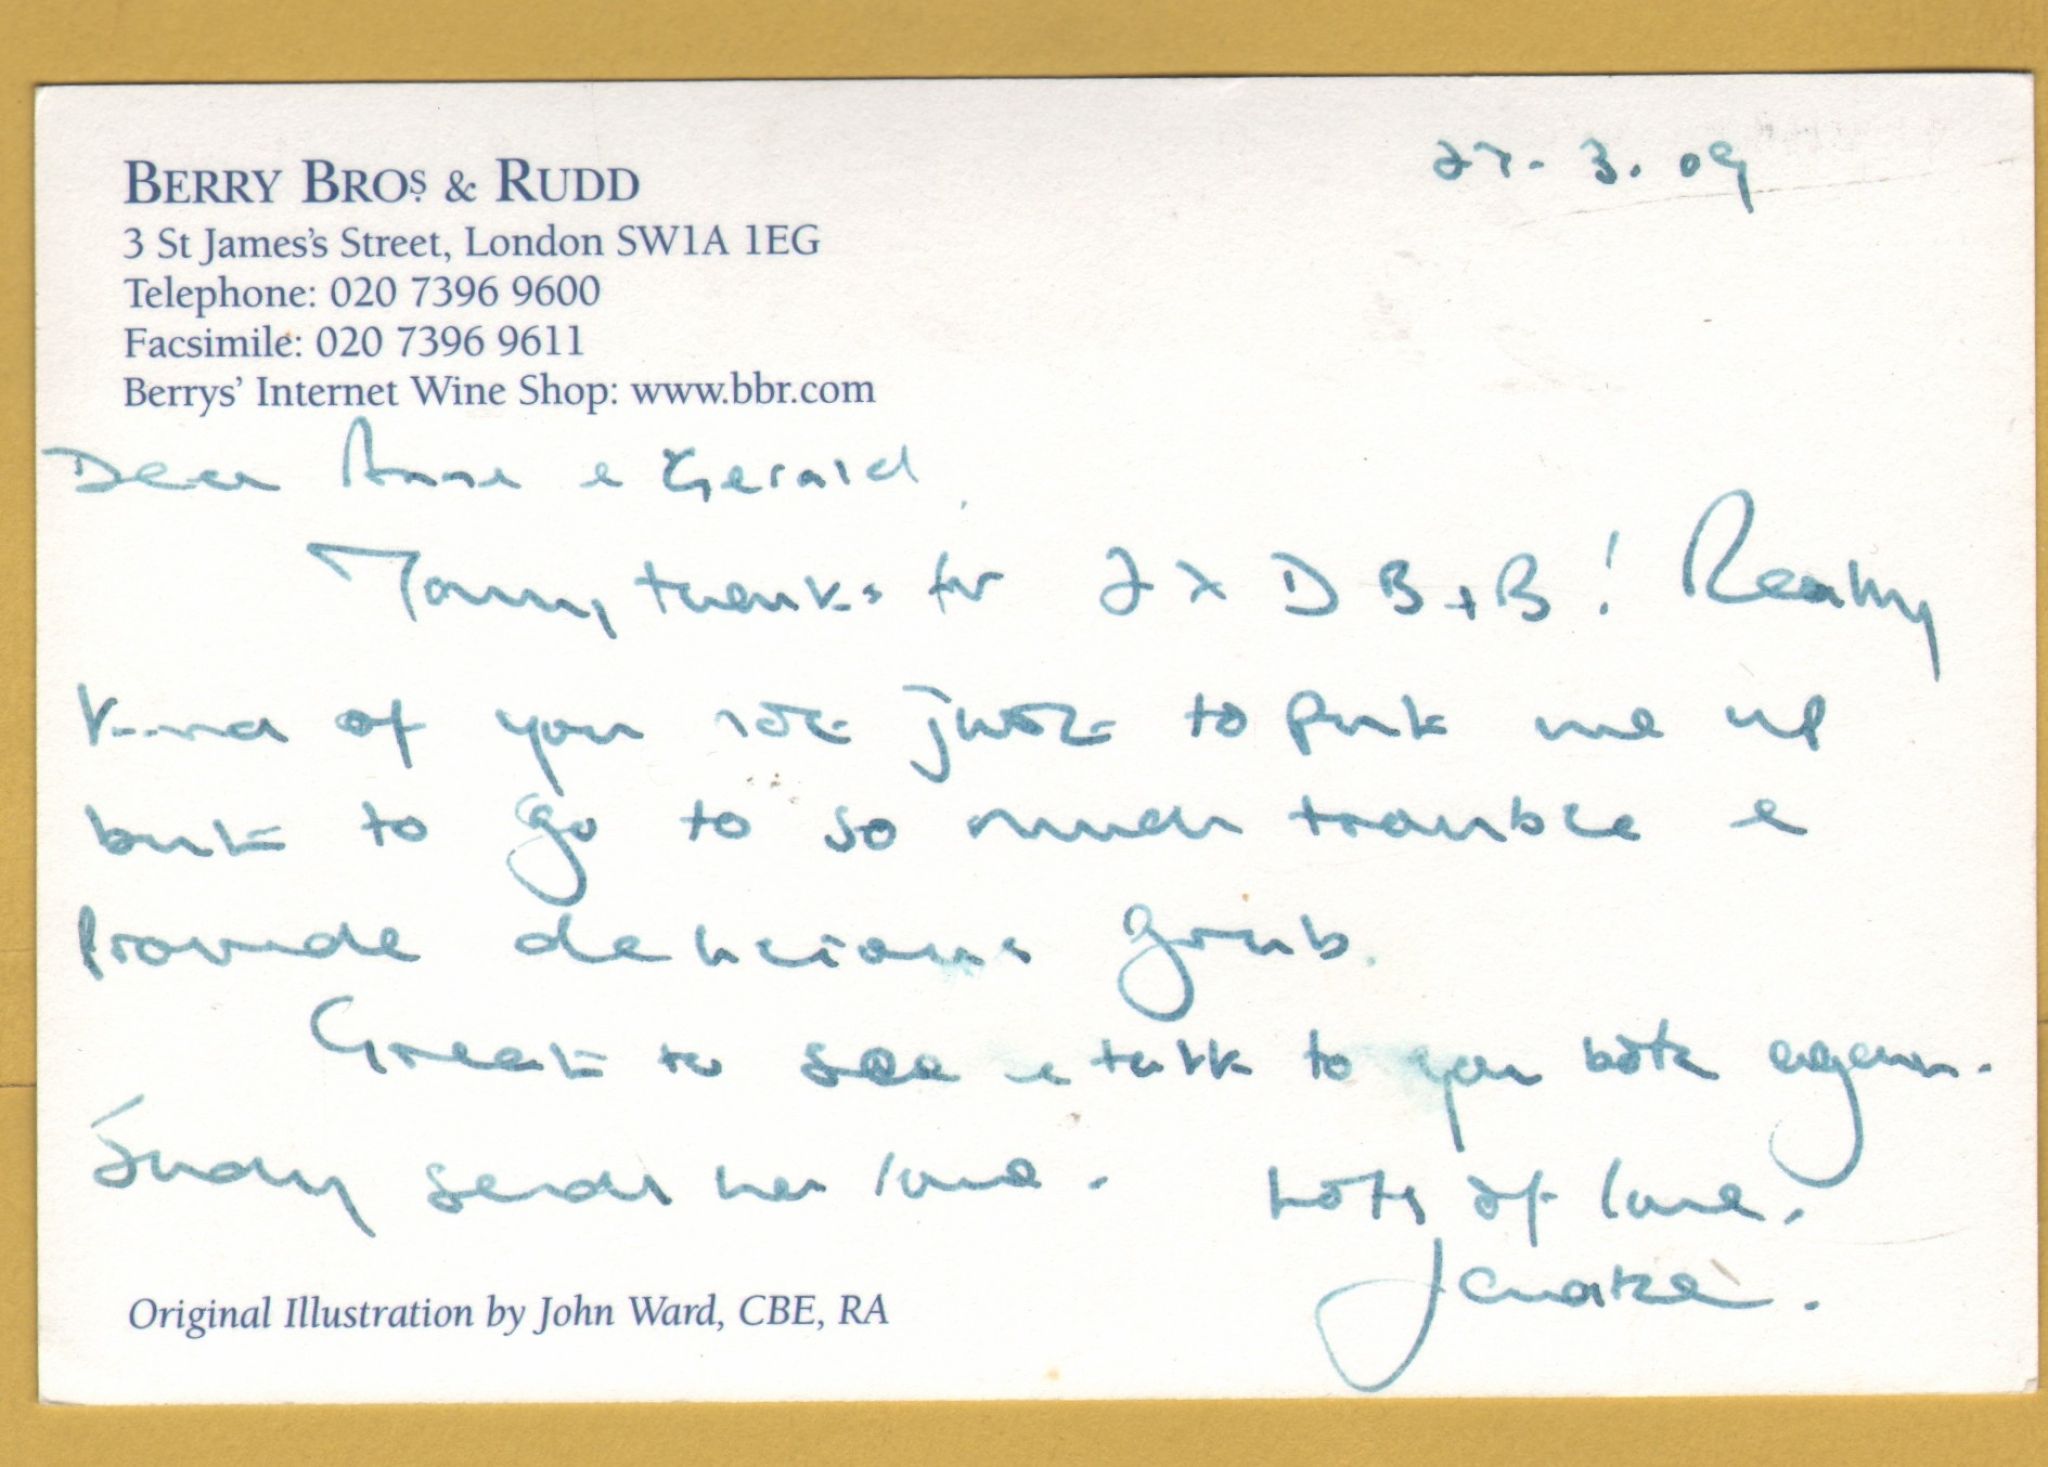 BERRY BROS. & RUDD
3 St James's Street, London SW1A 1EG
Telephone: 020 7396 9600
Facsimile: 020 7396 9611
Berrys' Internet Wine Shop: www.bbr.com
27. 3. 09
Dear Anne & Gerald,
Many thanks for 2 x D B + B! Really
kind of you not just to put me up
but to go to so much trouble &
provide delicious grub.
Great to see & talk to you both again.
Judy sends her love. Lots of love.
Original Illustration by John Ward, CBE, RA